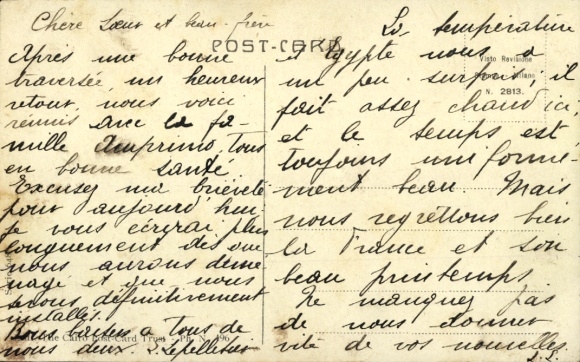 Chère Sœur et beau-frère
POST-CARD
Après une bonne
traversée, un heureux
retour, nous voici
réunis avec la fa-
mille Amprimo, tous
en bonne santé.
Excusez ma brièveté
pour aujourd'hui,
je vous écrirai plus
longuement dès que
nous aurons démé-
nagé et que nous
serons définitivement
installés.
The Cairo Post-Card Trust
Bons baisers à tous de
nous deux. Lepelletier
La température
d'Egypte nous a
un peu surpris, il
fait assez chaud ici,
et le temps est
toujours uniformé-
ment beau. Mais
nous regrettons bien
la France et son
beau printemps.
Ne manquez pas
de nous donner
vite de vos nouvelles.
Visto Revisione
Milano
N. 2813.